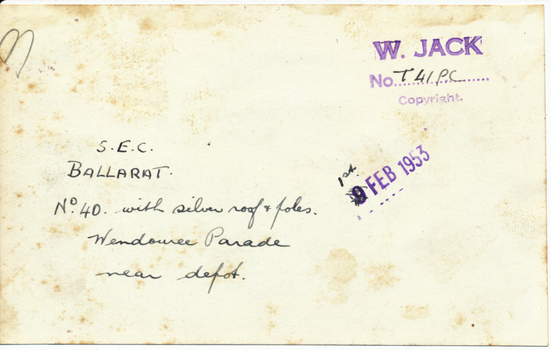 W. JACK
No. T 41 PC
Copyright.
1st.
9 FEB 1953
S.E.C.
BALLARAT.
No 40. with silver roof & poles.
Wendouree Parade
near depot.